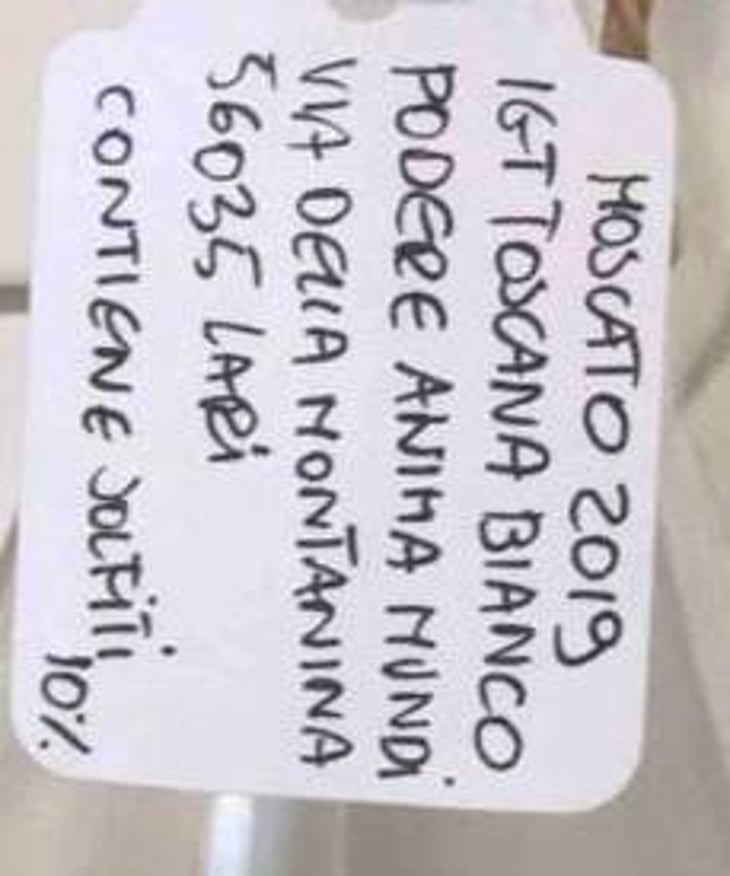 MOSCATO 2019
IGT TOSCANA BIANCO
PODERE ANIMA MUNDi
VIA DELLA MONTANINA
56035 LARi
CONTIENE SOLFiTi
10%